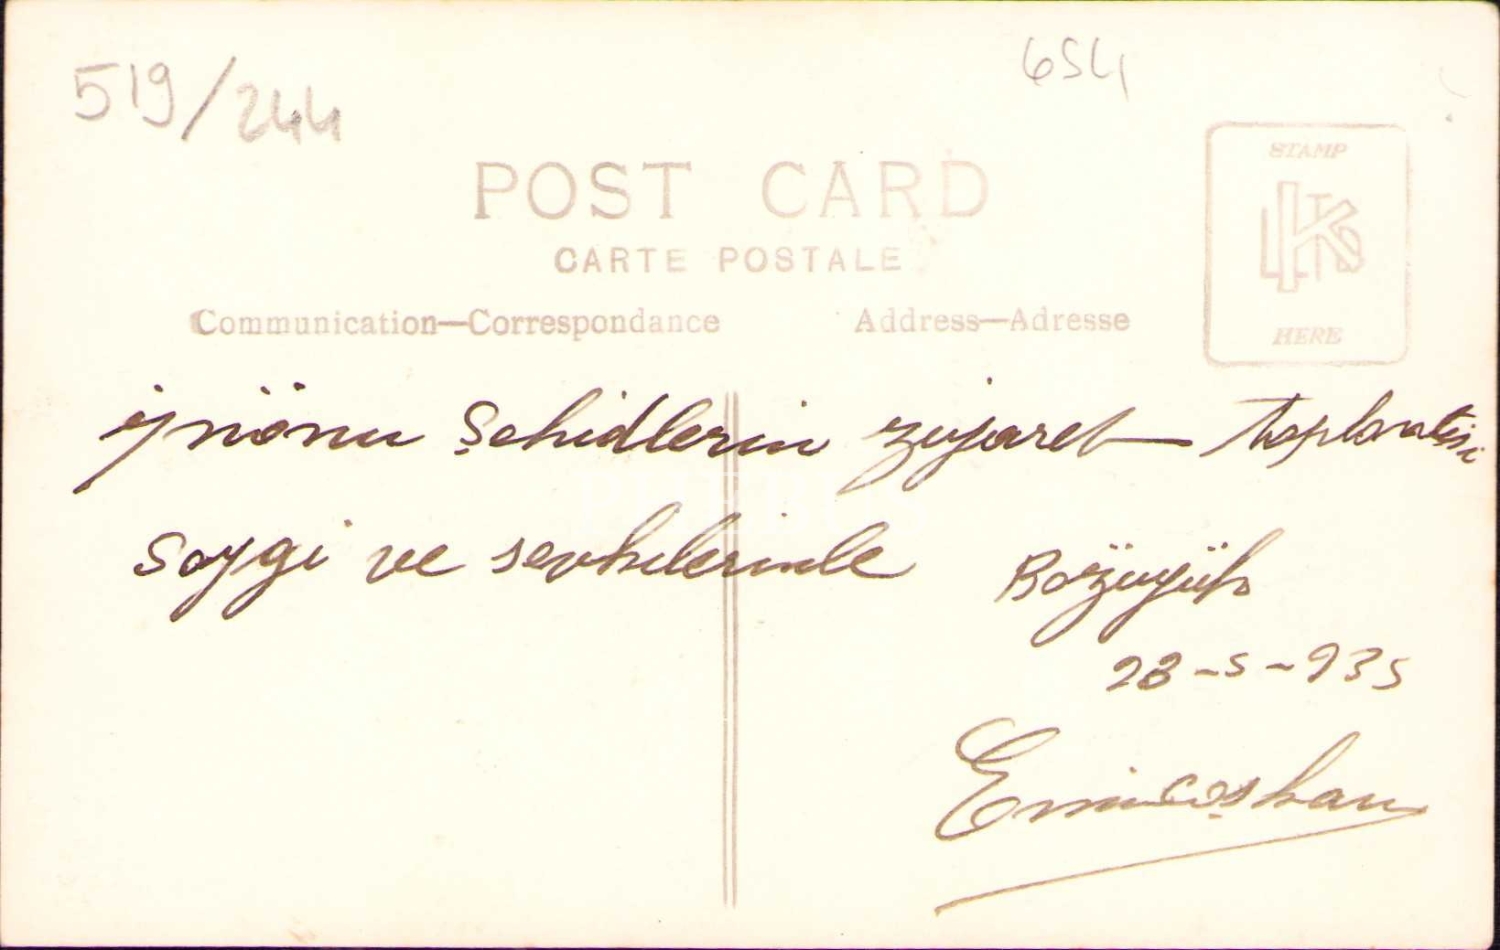 519/244
654
POST CARD
CARTE POSTALE
Communication—Correspondance
Address—Adresse
STAMP
HERE
inönu Şehidlerin zıyaret toplantisi
Saygi ve sevkilerimle
Bozüyük
28-5-935
Emin Coşkan